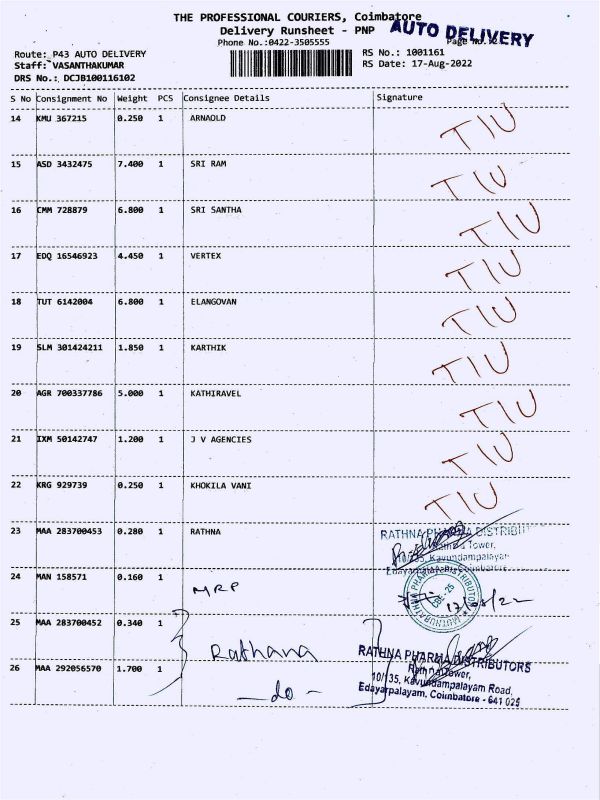 THE PROFESSIONAL COURIERS, Coimbatore
Delivery Runsheet - PNP
AUTO DELIVERY
Phone No.:0422-3505555
Route: P43 AUTO DELIVERY
RS No.: 1001161
Staff: VASANTHAKUMAR
RS Date: 17-Aug-2022
DRS No.: DCJB100116102
S No Consignment No Weight PCS Consignee Details Signature
14 KMU 367215 0.250 1 ARNAOLD TIU
15 ASD 3432475 7.400 1 SRI RAM TIU
16 CMM 728879 6.800 1 SRI SANTHA TIU
17 EDQ 16546923 4.450 1 VERTEX TIU
18 TUT 6142004 6.800 1 ELANGOVAN TIU
19 SLM 301424211 1.850 1 KARTHIK TIU
20 AGR 700337786 5.000 1 KATHIRAVEL TIU
21 IXM 50142747 1.200 1 J V AGENCIES TIU
22 KRG 929739 0.250 1 KHOKILA VANI TIU
23 MAA 283700453 0.280 1 RATHNA
RATHNA PHARMA DISTRIBUT
Rathna Tower,
10/135, Kavundampalayam
Edayarpalayam, Coimbatore
24 MAN 158571 0.160 1 MRP
MUTHURATHNA PHARMA DISTRIBUTORS
CBE-25
17/08/22
25 MAA 283700452 0.340 1 Rathana
26 MAA 292056570 1.700 1 -do-
RATHNA PHARMA DISTRIBUTORS
Rathna Tower,
10/135, Kavundampalayam Road,
Edayarpalayam, Coimbatore - 641 025